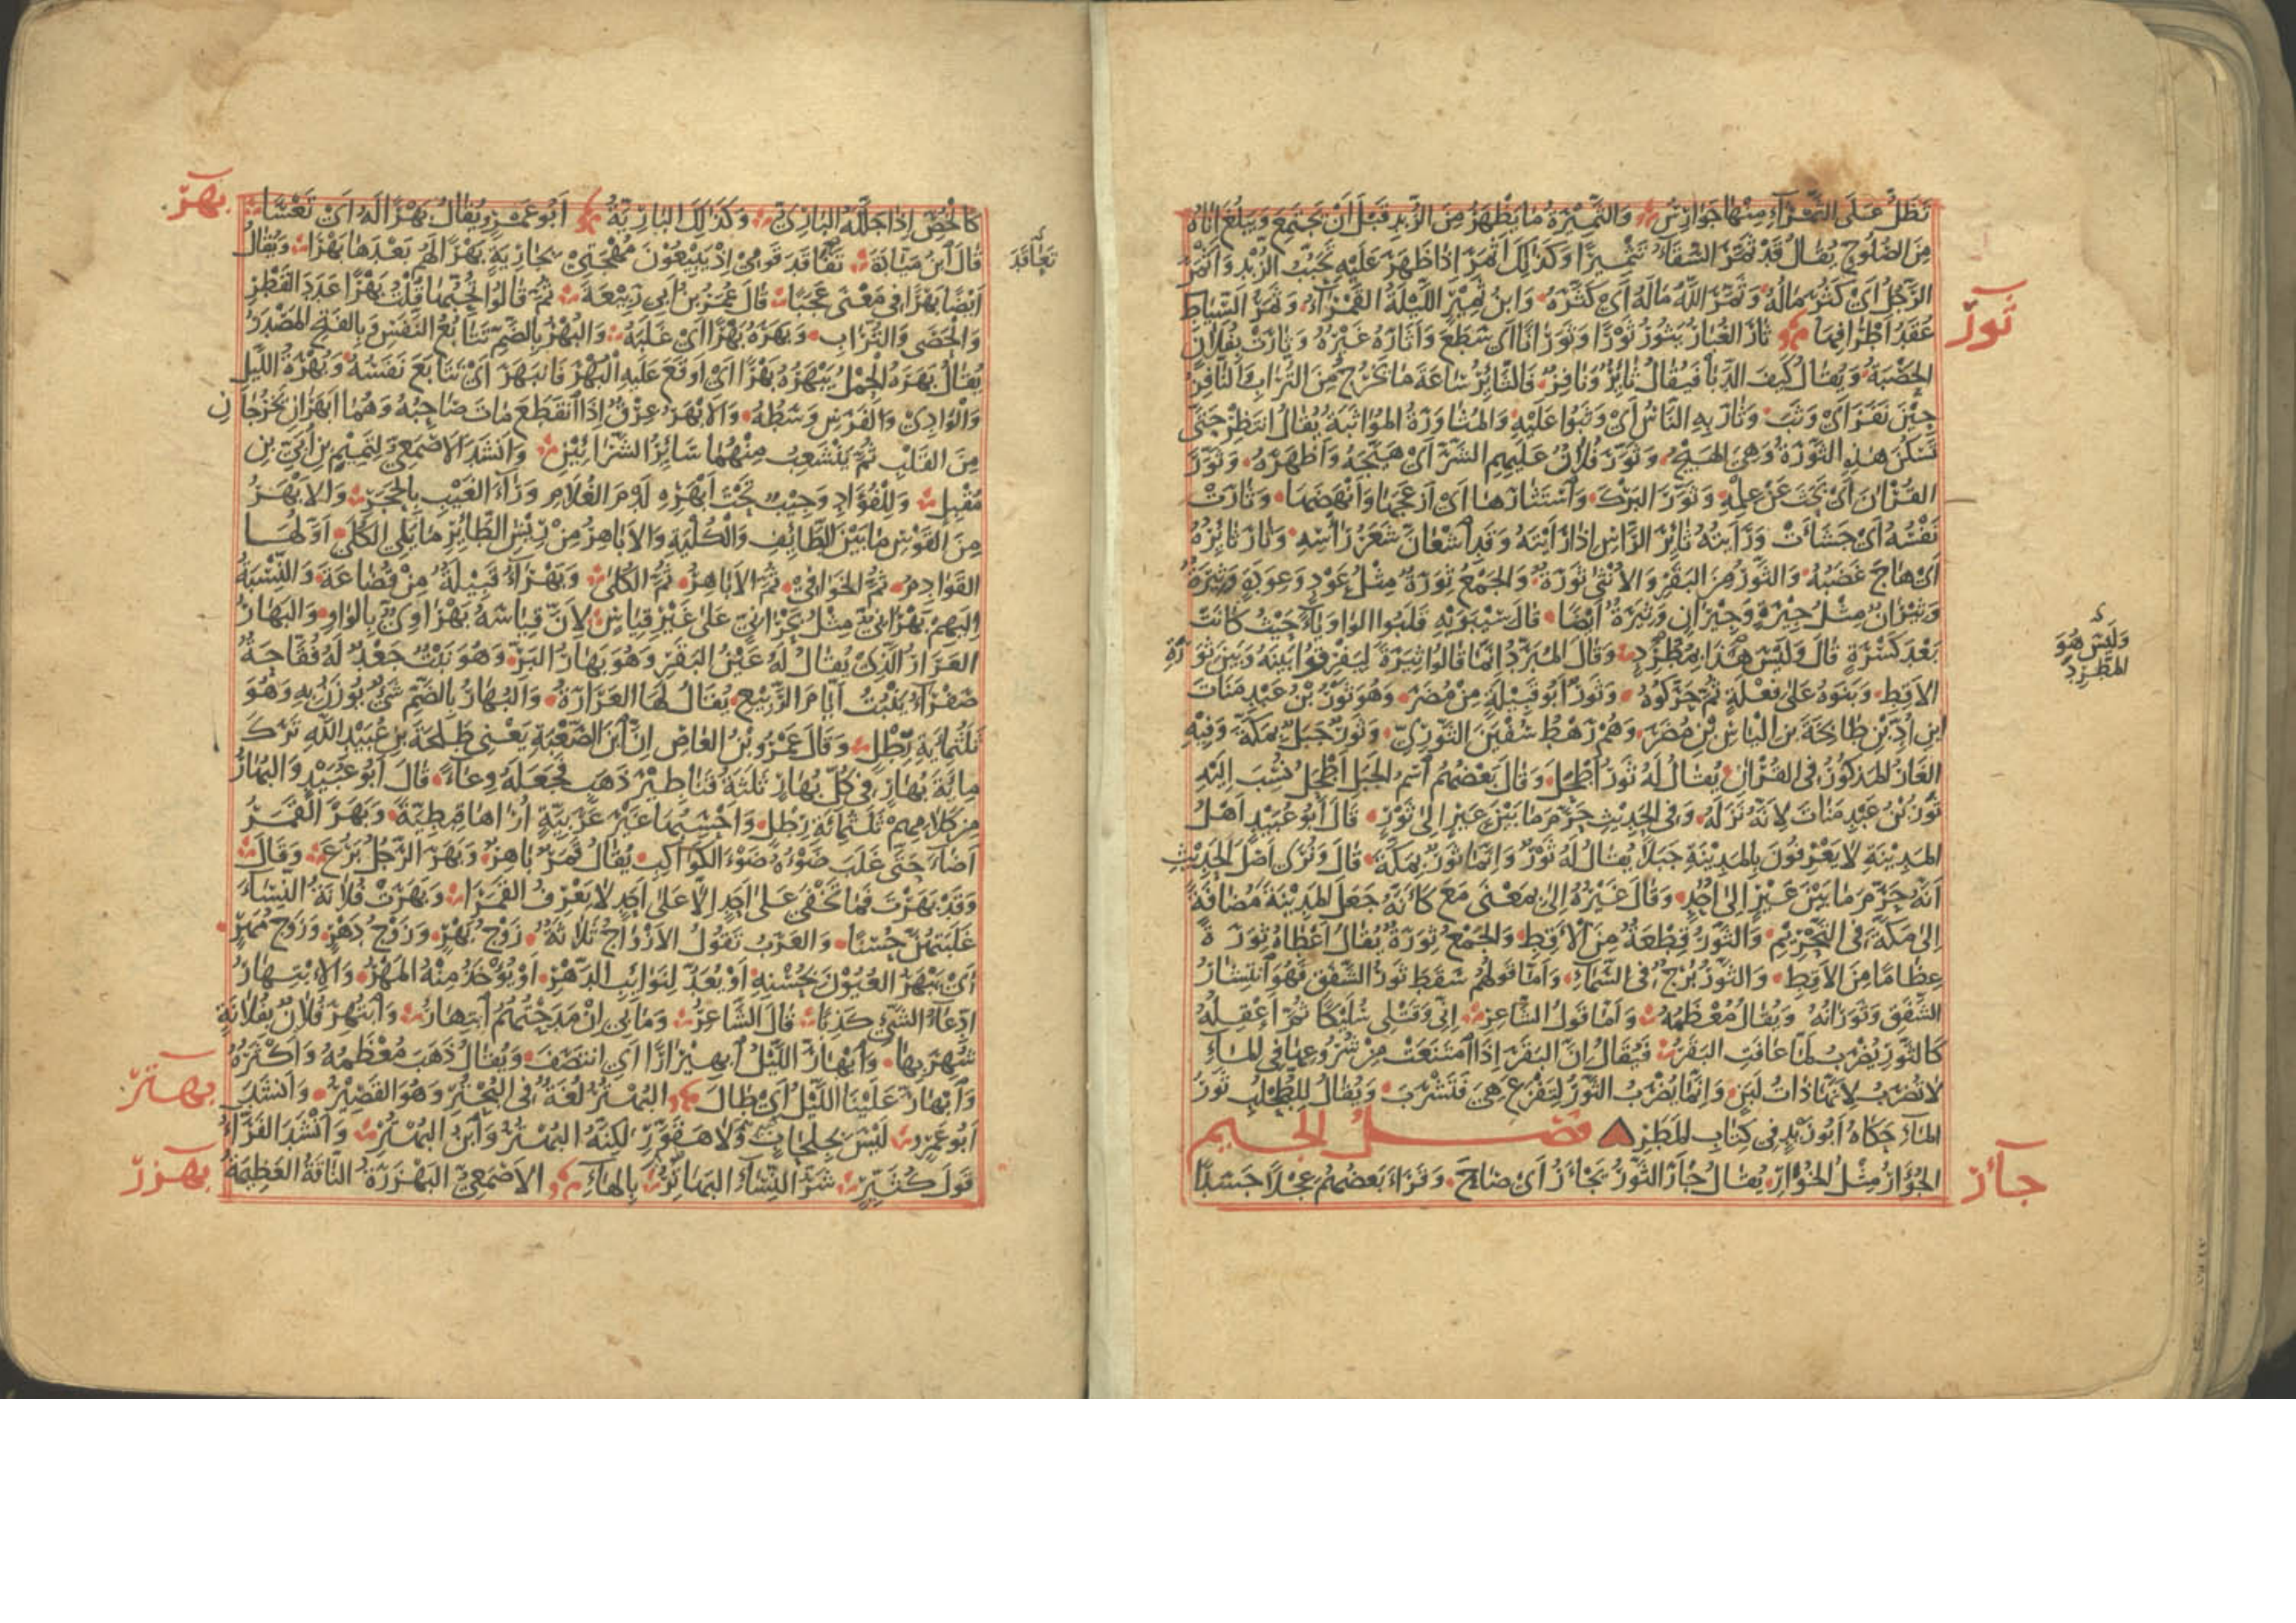 تَظَلُّ عَلَى الثَّمْرَاءِ مِنْهَا جَوَارِسُ وَالثَّمِيْرَةُ مَا يَظْهَرُ مِنَ الزُّبْدِ قَبْلَ اَنْ يَجْتَمِعَ وَيَبْلُغَ اِنَاهُ
مِنَ الصُّلُوحِ يُقَالُ قَدْ ثَمَّرَ السِّقَاءُ تَثْمِيرًا وَكَذٰلِكَ اَثْمَرَ اِذَا ظَهَرَ عَلَيْهِ تَحَبُّبُ الزُّبْدِ وَاَثْمَرَ
الرَّجُلُ اَيْ كَثُرَ مَالُهُ وَثَمَّرَ اللّٰهُ مَالَهُ اَيْ كَثَّرَهُ وَابْنُ ثَمِيْرٍ اللَّيْلَةُ الْقَمْرَاءُ وَثَمَرُ السِّيَاطِ
عُقَدُ اَطْرَافِهَا ثَارَ الْغُبَارُ يَثُورُ ثَوْرًا وَثَوَرَانًا اَيْ سَطَعَ وَاَثَارَهُ غَيْرُهُ وَثَارَتْ بِفُلَانٍ
ثَوَرَ
الْحَصْبَةُ وَيُقَالُ كَيْفَ الدَّبَا فَيُقَالُ ثَائِرٌ وَنَافِرٌ فَالثَّائِرُ سَاعَةَ مَا يَخْرُجُ مِنَ التُّرَابِ وَالنَّافِرُ
حِيْنَ نَفَرَ اَيْ وَثَبَ وَثَارَ بِهِ النَّاسُ اَيْ وَثَبُوا عَلَيْهِ وَالْمُثَاوَرَةُ الْمُوَاثَبَةُ يُقَالُ انْتَظِرْ حَتَّى
تَسْكُنَ هٰذِهِ الثَّوْرَةُ وَهِيَ الْهَيْجُ وَثَوَّرَ فُلَانٌ عَلَيْهِمِ الشَّرَّ اَيْ هَيَّجَهُ وَاَظْهَرَهُ وَثَوَّرَ
الْقُرْآنَ اَيْ بَحَثَ عَنْ عِلْمِهِ وَثَوَّرَ الْبَرْكَ وَاسْتَثَارَهَا اَيْ اَزْعَجَهَا وَاَنْهَضَهَا وَثَارَتْ
نَفْسُهُ اَيْ جَشَاَتْ وَرَاَيْتُهُ ثَائِرَ الرَّاْسِ اِذَا رَاَيْتَهُ وَقَدِ اشْعَانَّ شَعَرُ رَاْسِهِ وَثَارَ ثَائِرُهُ
اَيْ هَاجَ غَضَبُهُ وَالثَّوْرُ مِنَ الْبَقَرِ وَالْاُنْثَى ثَوْرَةٌ وَالْجَمْعُ ثِوَرَةٌ مِثْلُ عَوْدٍ وَعِوَدَةٍ وَثِيَرَةٌ
وَثِيْرَانٌ مِثْلُ جِيْرَةٍ وَجِيْرَانٍ وَثِيَرَةٌ اَيْضًا قَالَ سِيْبَوَيْهِ قَلَبُوا الْوَاوَ يَاءً حَيْثُ كَانَتْ
بَعْدَ كَسْرَةٍ قَالَ وَلَيْسَ هٰذَا بِمُطَّرِدٍ وَقَالَ الْمُبَرِّدُ اِنَّمَا قَالُوا ثِيَرَةٌ لِيَفْرِقُوا بَيْنَهُ وَبَيْنَ ثَوْرَةِ
وَلَيْسَ هُوَ
الْمُطَّرِدَ
الْاَقِطِ وَبَنَوْهُ عَلَى فِعْلَةٍ ثُمَّ حَرَّكُوهُ وَثَوْرٌ اَبُو قَبِيْلَةٍ مِنْ مُضَرَ وَهُوَ ثَوْرُ بْنُ عَبْدِ مَنَاتَ
ابْنِ اُدِّ بْنِ طَابِخَةَ بْنِ الْيَاسِ بْنِ مُضَرَ وَهُمْ رَهْطُ سُفْيٰنَ الثَّوْرِيِّ وَثَوْرٌ جَبَلٌ بِمَكَّةَ وَفِيْهِ
الْغَارُ الْمَذْكُورُ فِي الْقُرْآنِ يُقَالُ لَهُ ثَوْرُ اَطْحَلَ وَقَالَ بَعْضُهُمُ اسْمُ الْجَبَلِ اَطْحَلُ نُسِبَ اِلَيْهِ
ثَوْرُ بْنُ عَبْدِ مَنَاتَ لِاَنَّهُ نَزَلَهُ وَفِي الْحَدِيْثِ حَرَّمَ مَا بَيْنَ عَيْرٍ اِلَى ثَوْرٍ قَالَ اَبُو عُبَيْدٍ اَهْلُ
الْمَدِيْنَةِ لَا يَعْرِفُونَ بِالْمَدِيْنَةِ جَبَلًا يُقَالُ لَهُ ثَوْرٌ وَاِنَّمَا ثَوْرٌ بِمَكَّةَ قَالَ وَنُرَى اَصْلَ الْحَدِيْثِ
اَنَّهُ حَرَّمَ مَا بَيْنَ عَيْرٍ اِلَى اُحُدٍ وَقَالَ غَيْرُهُ اِلَى بِمَعْنَى مَعَ كَاَنَّهُ جَعَلَ الْمَدِيْنَةَ مُضَافَةً
اِلَى مَكَّةَ فِي التَّحْرِيْمِ وَالثَّوْرُ قِطْعَةٌ مِنَ الْاَقِطِ وَالْجَمْعُ ثِوَرَةٌ يُقَالُ اَعْطَاهُ ثِوَرَةً
عِظَامًا مِنَ الْاَقِطِ وَالثَّوْرُ بُرْجٌ فِي السَّمَاءِ وَاَمَّا قَوْلُهُمْ سَقَطَ ثَوْرُ الشَّفَقِ فَهُوَ انْتِشَارُ
الشَّفَقِ وَثَوَرَانُهُ وَيُقَالُ مُعْظَمُهُ وَاَمَّا قَوْلُ الشَّاعِرِ اِنِّي وَقَتْلِي سُلَيْكًا ثُمَّ اَعْقِلَهُ
كَالثَّوْرِ يُضْرَبُ لَمَّا عَافَتِ الْبَقَرُ فَيُقَالُ اِنَّ الْبَقَرَ اِذَا امْتَنَعَتْ مِنْ شُرُوعِهَا فِي الْمَاءِ
لَا تُضْرَبُ لِاَنَّهَا ذَاتُ لَبَنٍ وَاِنَّمَا يُضْرَبُ الثَّوْرُ لِتَفْزَعَ هِيَ فَتَشْرَبَ وَيُقَالُ لِلطُّحْلُبِ ثَوْرُ
الْمَاءِ حَكَاهُ اَبُو زَيْدٍ فِي كِتَابِ الْمَطَرِ فَصْلُ الْجِيم
الْجُؤَارُ مِثْلُ الْخُوَارِ يُقَالُ جَاَرَ الثَّوْرُ يَجْاَرُ اَيْ صَاحَ وَقَرَاَ بَعْضُهُمْ عِجْلًا جَسَدًا
جَاَرَ
كَالْخُصِّ اِذَا جَلَّلَهُ الْبَارِيُّ وَكَذٰلِكَ الْبَارِيَّةُ اَبُو عَمْرٍو يُقَالُ بَهْرًا لَهُ اَيْ تَعْسًا
بَهَرَ
قَالَ ابْنُ مَيَّادَةَ تَفَاقَدَ قَوْمِيْ اِذْ يَبِيْعُوْنَ مُهْجَتِيْ بِجَارِيَةٍ بَهْرًا لَهُمْ بَعْدَهَا بَهْرَا وَيُقَالُ
تَعَاقَدَ
اَيْضًا بَهْرًا فِي مَعْنَى عَجَبًا قَالَ عُمَرُ بْنُ اَبِي رَبِيْعَةَ ثُمَّ قَالُوا تُحِبُّهَا قُلْتُ بَهْرًا عَدَدَ الْقَطْرِ
وَالْحَصَى وَالتُّرَابِ وَبَهَرَهُ بَهْرًا اَيْ غَلَبَهُ وَالْبُهْرُ بِالضَّمِّ تَتَابُعُ النَّفَسِ وَبِالْفَتْحِ الْمَصْدَرُ
يُقَالُ بَهَرَهُ الْحِمْلُ يَبْهَرُهُ بَهْرًا اَيْ اَوْقَعَ عَلَيْهِ الْبُهْرَ فَانْبَهَرَ اَيْ تَتَابَعَ نَفَسُهُ وَبُهْرَةُ اللَّيْلِ
وَالْوَادِيْ وَالْفَرَسِ وَسَطُهُ وَالْاَبْهَرُ عِرْقٌ اِذَا انْقَطَعَ مَاتَ صَاحِبُهُ وَهُمَا اَبْهَرَانِ يَخْرُجَانِ
مِنَ الْقَلْبِ ثُمَّ يَنْشَعِبُ مِنْهُمَا سَائِرُ الشَّرَائِيْنِ وَاَنْشَدَ الْاَصْمَعِيُّ لِتَمِيْمِ بْنِ اُبَيِّ بْنِ
مُقْبِلٍ وَلِلْفُؤَادِ وَجِيْبٌ تَحْتَ اَبْهَرِهِ لَدْمَ الْغُلَامِ وَرَاءَ الْغَيْبِ بِالْحَجَرِ وَالْاَبْهَرُ
مِنَ الْقَوْسِ مَا بَيْنَ الطَّائِفِ وَالْكُلْيَةِ وَالْاَبَاهِرُ مِنْ رِيْشِ الطَّائِرِ مَا يَلِي الْكُلَى اَوَّلُهَا
الْقَوَادِمُ ثُمَّ الْخَوَافِيْ ثُمَّ الْاَبَاهِرُ ثُمَّ الْكُلَى وَبَهْرَاءُ قَبِيْلَةٌ مِنْ قُضَاعَةَ وَالنِّسْبَةُ
اِلَيْهِمْ بَهْرَانِيٌّ مِثْلُ بَحْرَانِيٍّ عَلَى غَيْرِ قِيَاسٍ لِاَنَّ قِيَاسَهُ بَهْرَاوِيٌّ بِالْوَاوِ وَالْبَهَارُ
الْعَرَارُ الَّذِيْ يُقَالُ لَهُ عَيْنُ الْبَقَرِ وَهُوَ بَهَارُ الْبَرِّ وَهُوَ نَبْتٌ جَعْدٌ لَهُ فُقَّاحَةٌ
صَفْرَاءُ يَنْبُتُ اَيَّامَ الرَّبِيْعِ يُقَالُ لَهَا الْعَرَارَةُ وَالْبُهَارُ بِالضَّمِّ شَيْءٌ يُوْزَنُ بِهِ وَهُوَ
ثَلٰثُمِايَةِ رِطْلٍ وَقَالَ عَمْرُو بْنُ الْعَاصِ اِنَّ ابْنَ الصَّعْبَةِ يَعْنِي طَلْحَةَ بْنَ عُبَيْدِ اللّٰهِ تَرَكَ
مِايَةَ بُهَارٍ فِي كُلِّ بُهَارٍ ثَلٰثَةُ قَنَاطِيْرَ ذَهَبٍ فَجَعَلَهُ وِعَاءً قَالَ اَبُو عُبَيْدٍ وَالْبُهَارُ
مِنْ كَلَامِهِمْ ثَلٰثُمِائَةِ رِطْلٍ وَاَحْسِبُهَا غَيْرَ عَرَبِيَّةٍ اُرَاهَا قِبْطِيَّةً وَبَهَرَ الْقَمَرُ
اَضَاءَ حَتَّى غَلَبَ ضَوْءُهُ ضَوْءَ الْكَوَاكِبِ يُقَالُ قَمَرٌ بَاهِرٌ وَبَهَرَ الرَّجُلُ بَرَعَ وَقَالَ
وَقَدْ بَهَرْتَ فَمَا تَخْفَى عَلَى اَحَدٍ اِلَّا عَلَى اَحَدٍ لَا يَعْرِفُ الْقَمَرَا وَبَهَرَتْ فُلَانَةُ النِّسَاءَ
غَلَبَتْهُنَّ حُسْنًا وَالْعَرَبُ تَقُولُ الْاَزْوَاجُ ثَلَاثَةٌ زَوْجُ بَهْرٍ وَزَوْجُ دَهْرٍ وَزَوْجُ مَهْرٍ
اَيْ يَبْهَرُ الْعُيُوْنَ بِحُسْنِهِ اَوْ يُعَدُّ لِنَوَائِبِ الدَّهْرِ اَوْ يُؤْخَذُ مِنْهُ الْمَهْرُ وَالْاِبْتِهَارُ
ادِّعَاءُ الشَّيْءِ كَذِبًا قَالَ الشَّاعِرُ وَمَا بِي اِنْ مَدَحْتُهُمُ ابْتِهَارُ وَابْتُهِرَ فُلَانٌ بِفُلَانَةٍ
شُهِرَ بِهَا وَابْهَارَّ اللَّيْلُ ابْهِيْرَارًا اَيِ انْتَصَفَ وَيُقَالُ ذَهَبَ مُعْظَمُهُ وَاَكْثَرُهُ
وَابْهَارَّ عَلَيْنَا اللَّيْلُ اَيْ طَالَ الْبُهْتُرُ لُغَةٌ فِي الْبُحْتُرِ وَهُوَ الْقَصِيْرُ وَاَنْشَدَ
بَهْتَرَ
اَبُو عَمْرٍو لَيْسَ بِجِلْحَابٍ وَلَا هَقَوَّرِ لٰكِنَّهُ الْبُهْتُرُ وَابْنُ الْبُهْتُرِ وَاَنْشَدَ الْفَرَّاءُ
قَوْلَ كُثَيِّرٍ شَرُّ النِّسَاءِ الْبَهَاتِرُ بِالْهَاءِ الْاَصْمَعِيُّ الْبَهْزَرَةُ النَّاقَةُ الْعَظِيْمَةُ
بَهْزَرَ